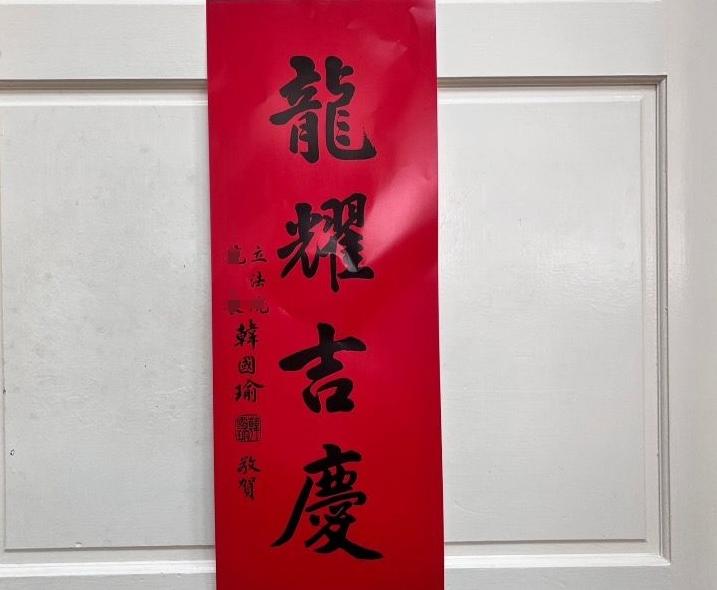 龍耀吉慶
立法院
韓國瑜
敬賀